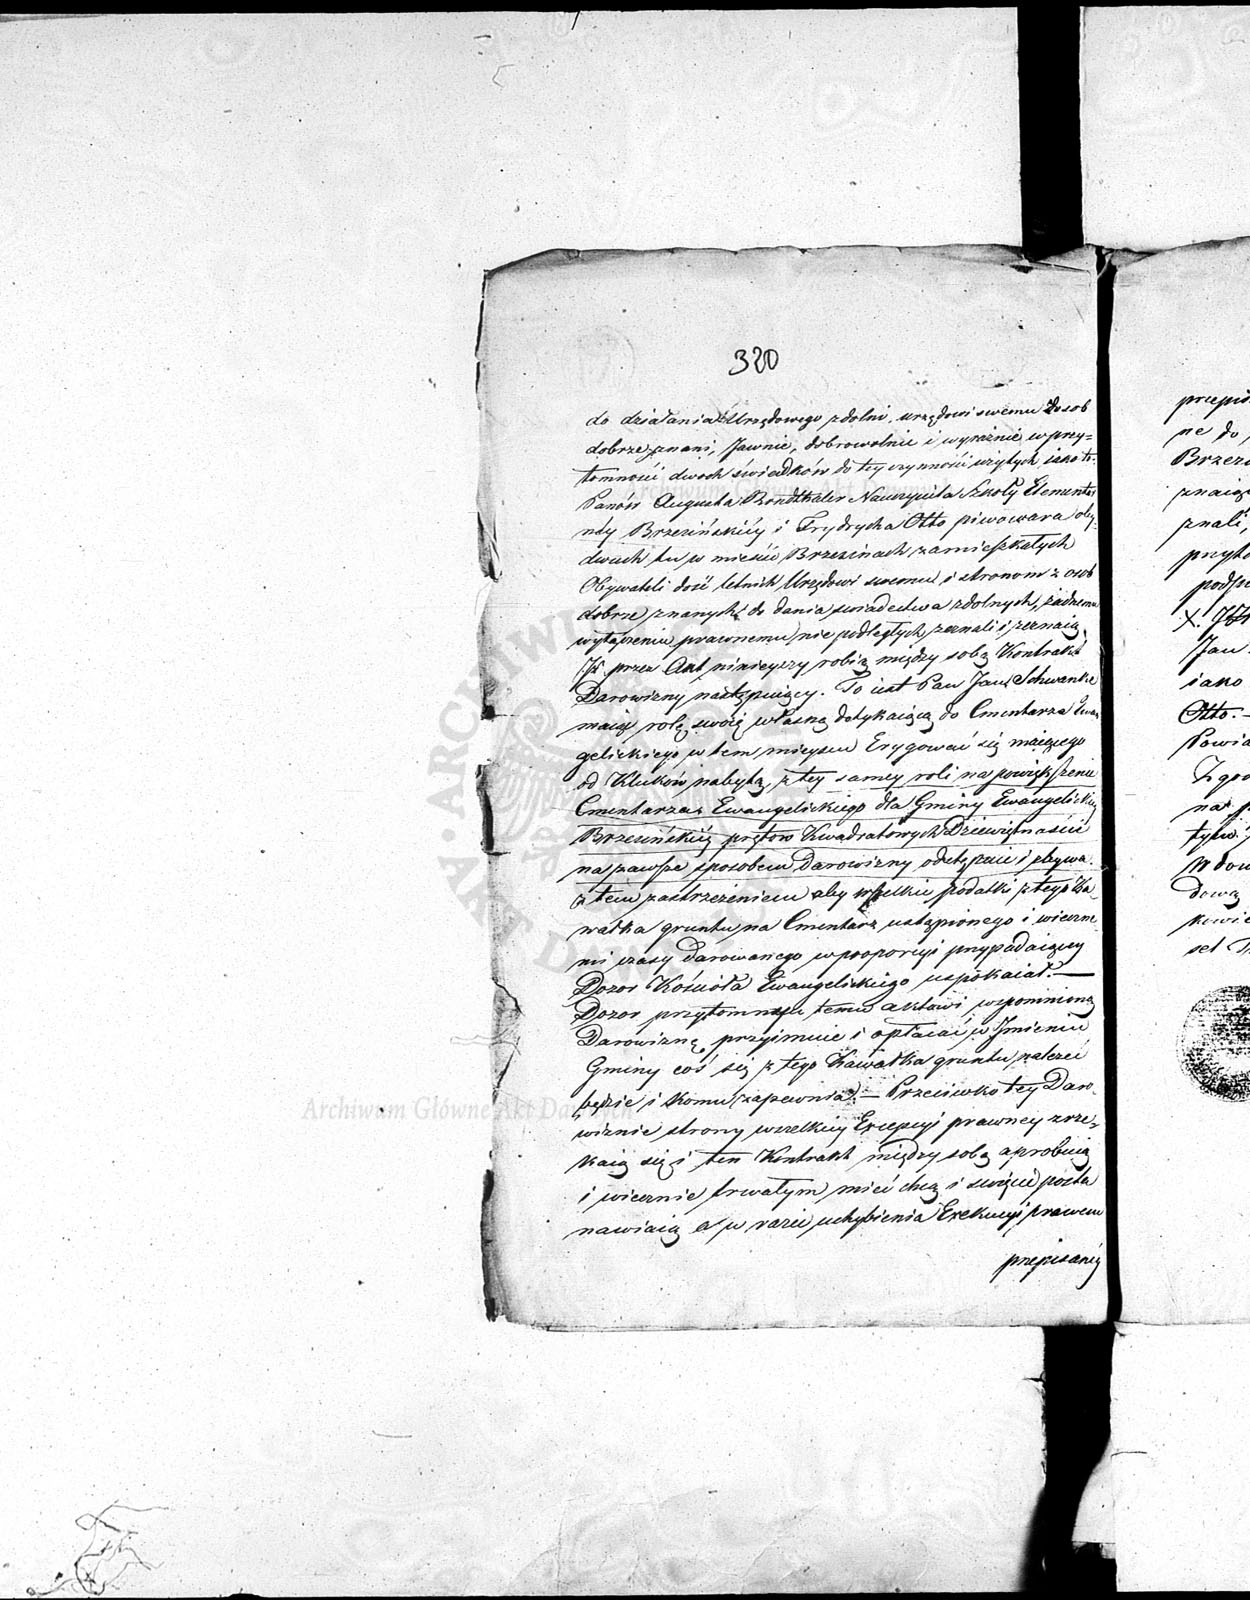 320
do działania Urzędowego zdolni, urzędowi swemu z osob
dobrze znani, Jawnie, dobrowolnie i wyraźnie w przy=
tomności dwoch świadków do tey czynności użytych iako to:
Panów Augusta Bondthaler Nauczyciela Szkoły Elementar
ney Brzezińskiéy i Frydrycha Otto piwowara oby-
dwach tu w mieście Brzezinach zamieszkałych
Obywateli dość letnich Urzędowi swemu i stronom z osob
dobrze znanych do dania świadectwa zdolnych, żadnemu
wyłączeniu prawnemu nie podległych zeznali i zeznaią,
Iż przez Akt ninieyszy robią między sobą Kontrakt
Darowizny następuiący. To iest Pan Jan Schwanke
maiąc rolę swoią własną dotykaiącą do Cmentarza Ewan
gelickiego w tem mieyscu Erygować się maiącego
od Kluków nabytą, z tey samey roli na powiększenie
Cmentarza Ewangelickiego dla Gminy Ewangelickiéy
Brzezińskiéy prętow Kwadratowych Dziewiętnaście
na zawsze sposobem Darowizny odstępuie i zbywa.
z tem zastrzeżeniem aby wszelkie podatki z tego Ka-
wałka gruntu na Cmentarz ustąpionego i wieczne
mi czasy darowanego w proporcyi przypadaiącey
Dozor Kościoła Ewangelickiego uspokaiał.—
Dozor przytomny temu aktowi wspomnioną
Darowiznę przyimuie i opłacać w Jmieniu
Gminy coś się z tego Kawałka gruntu należeć
będzie i komu zapewnia.— Przeciwko tey Daro-
wiznie strony wszelkiey Excepcyi prawney zrze-
kaią się i ten Kontrakt między sobą aprobuią
i wiecznie trwałym mieć chcą i święcie posta
nawiaią a w razie uchybienia Exekucyi prawem
przepisaney
przepis
ne do
Brzezi
znaią
znali,
przyto
podpi
Jan
iako
Otto.—
Powia
Zgod
na p
tyłu
Wdow
dową
kowie
set
Archiwum Główne Akt Dawnych